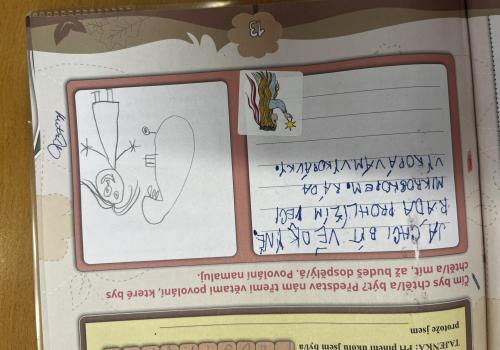 TAJENKA: Při plnění úkolů jsem byl/a
protože jsem
Čím bys chtěl/a být? Představ nám třemi větami povolání, které bys
chtěl/a mít, až budeš dospělý/á. Povolání namaluj.
JÁ CHCI BÍT VĚDKYNĚ
RÁDA PROHLÍŽÍM VĚCI
MIKROSKOPEM. RÁDA
VYKOPÁVÁM VYKOPÁVKY.
13